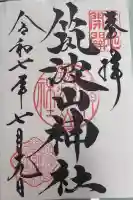 奉拝
筑波山神社
令和七年七月九日